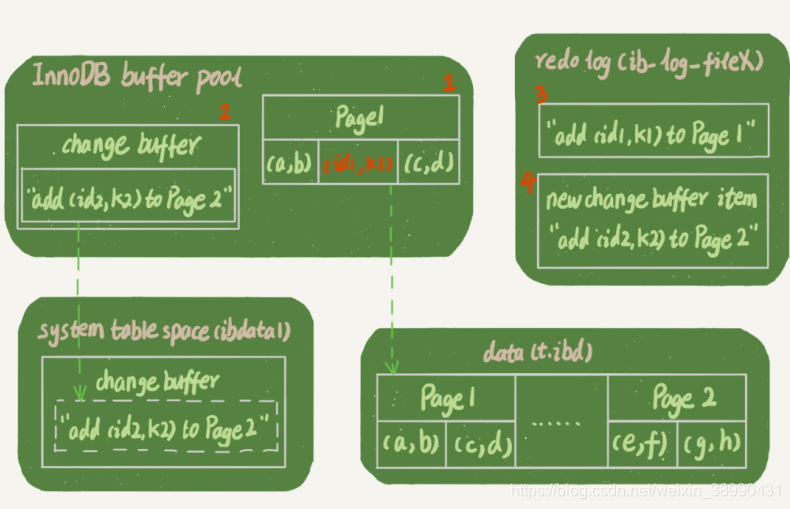 InnoDB buffer pool
2
change buffer
"add (id2,k2) to Page 2"
1
Page1
(a,b) (id1,k1) (c,d)
redo log (ib_log_fileX)
3
"add (id1,k1) to Page 1"
4
new change buffer item
"add (id2,k2) to Page 2"
system table space (ibdata1)
change buffer
"add (id2,k2) to Page 2"
data (t.ibd)
Page1 ...... Page 2
(a,b) (c,d) (e,f) (g,h)
https://blog.csdn.net/weixin_38990431